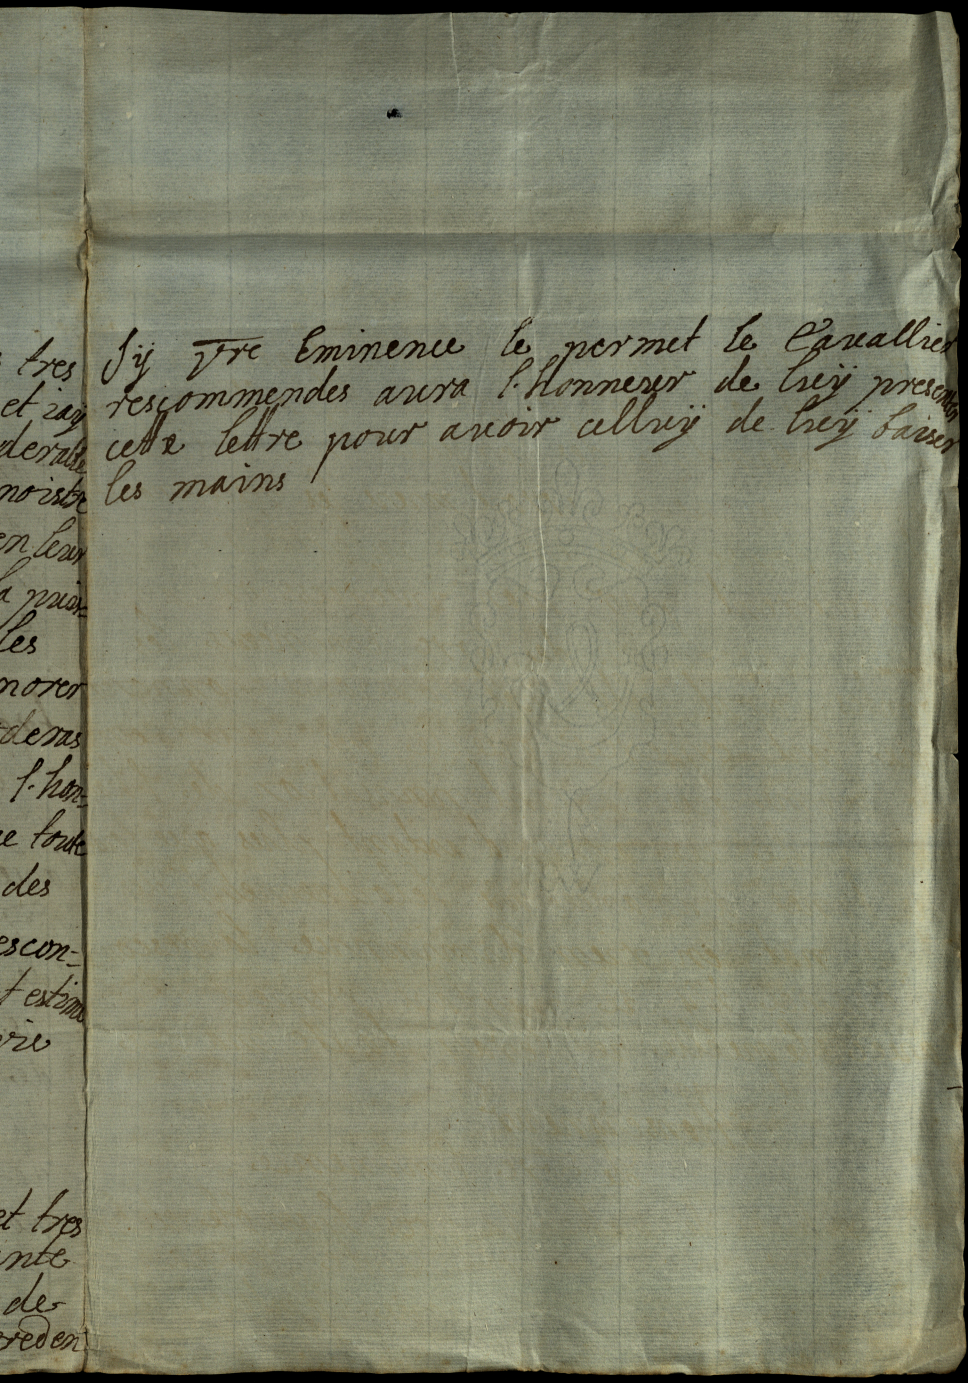 tres
et jay
derable
noistre
en leur
la prias-
les
norer
deras
l'hon-
e toute
des
escon-
t estime
vie
et tres
ante
de
reden
Sÿ vre Eminence le permet le Cavallier
rescommendes aura l'honneur de luÿ presenter
cette lettre pour avoir celluÿ de luÿ baiser
les mains